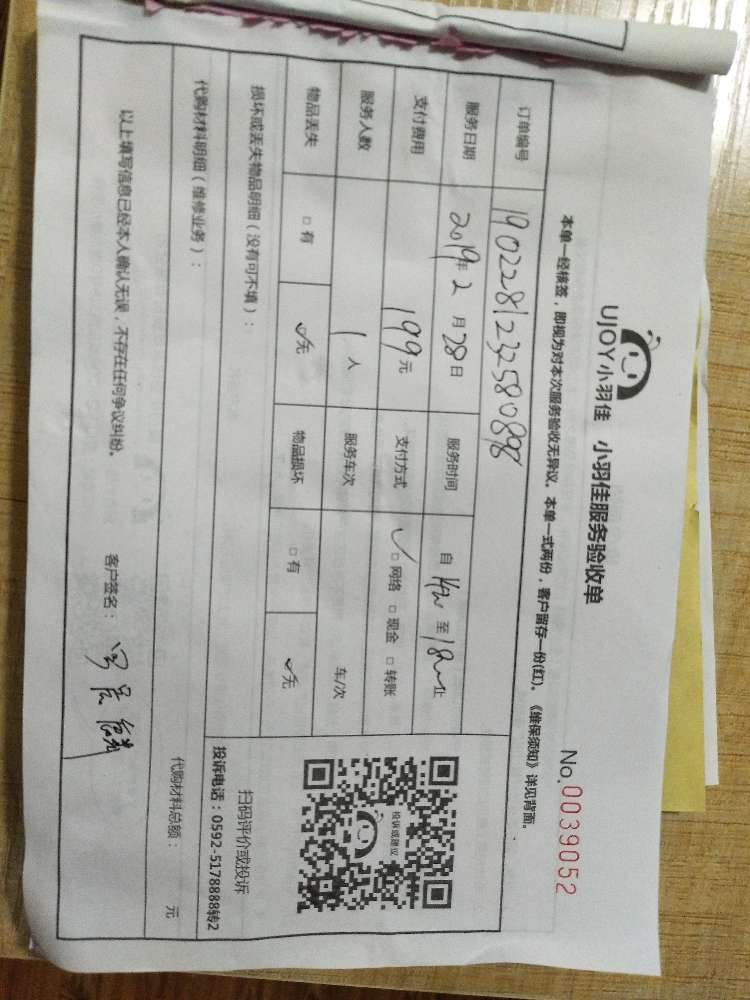 UJOY小羽佳 小羽佳服务验收单
No.0039052
本单一经核签，即视为对本次服务验收无异议。本单一式两份，客户留存一份(红)。《维保须知》详见背面。
订单编号 190228123258089
服务日期 2019年2月28日 服务时间 自 至 止
支付费用 199元 支付方式 ✓□网络 □现金 □转账
服务人数 1人 服务车次 车/次
物品丢失 □有 ✓无 物品损坏 □有 ✓无
投诉或建议
扫码评价或投诉
投诉电话：0592-5178888转2
损坏或丢失物品明细（没有可不填）：
代购材料明细（维修业务）： 代购材料总额： 元
以上填写信息已经本人确认无误，不存在任何争议纠纷。 客户签名：